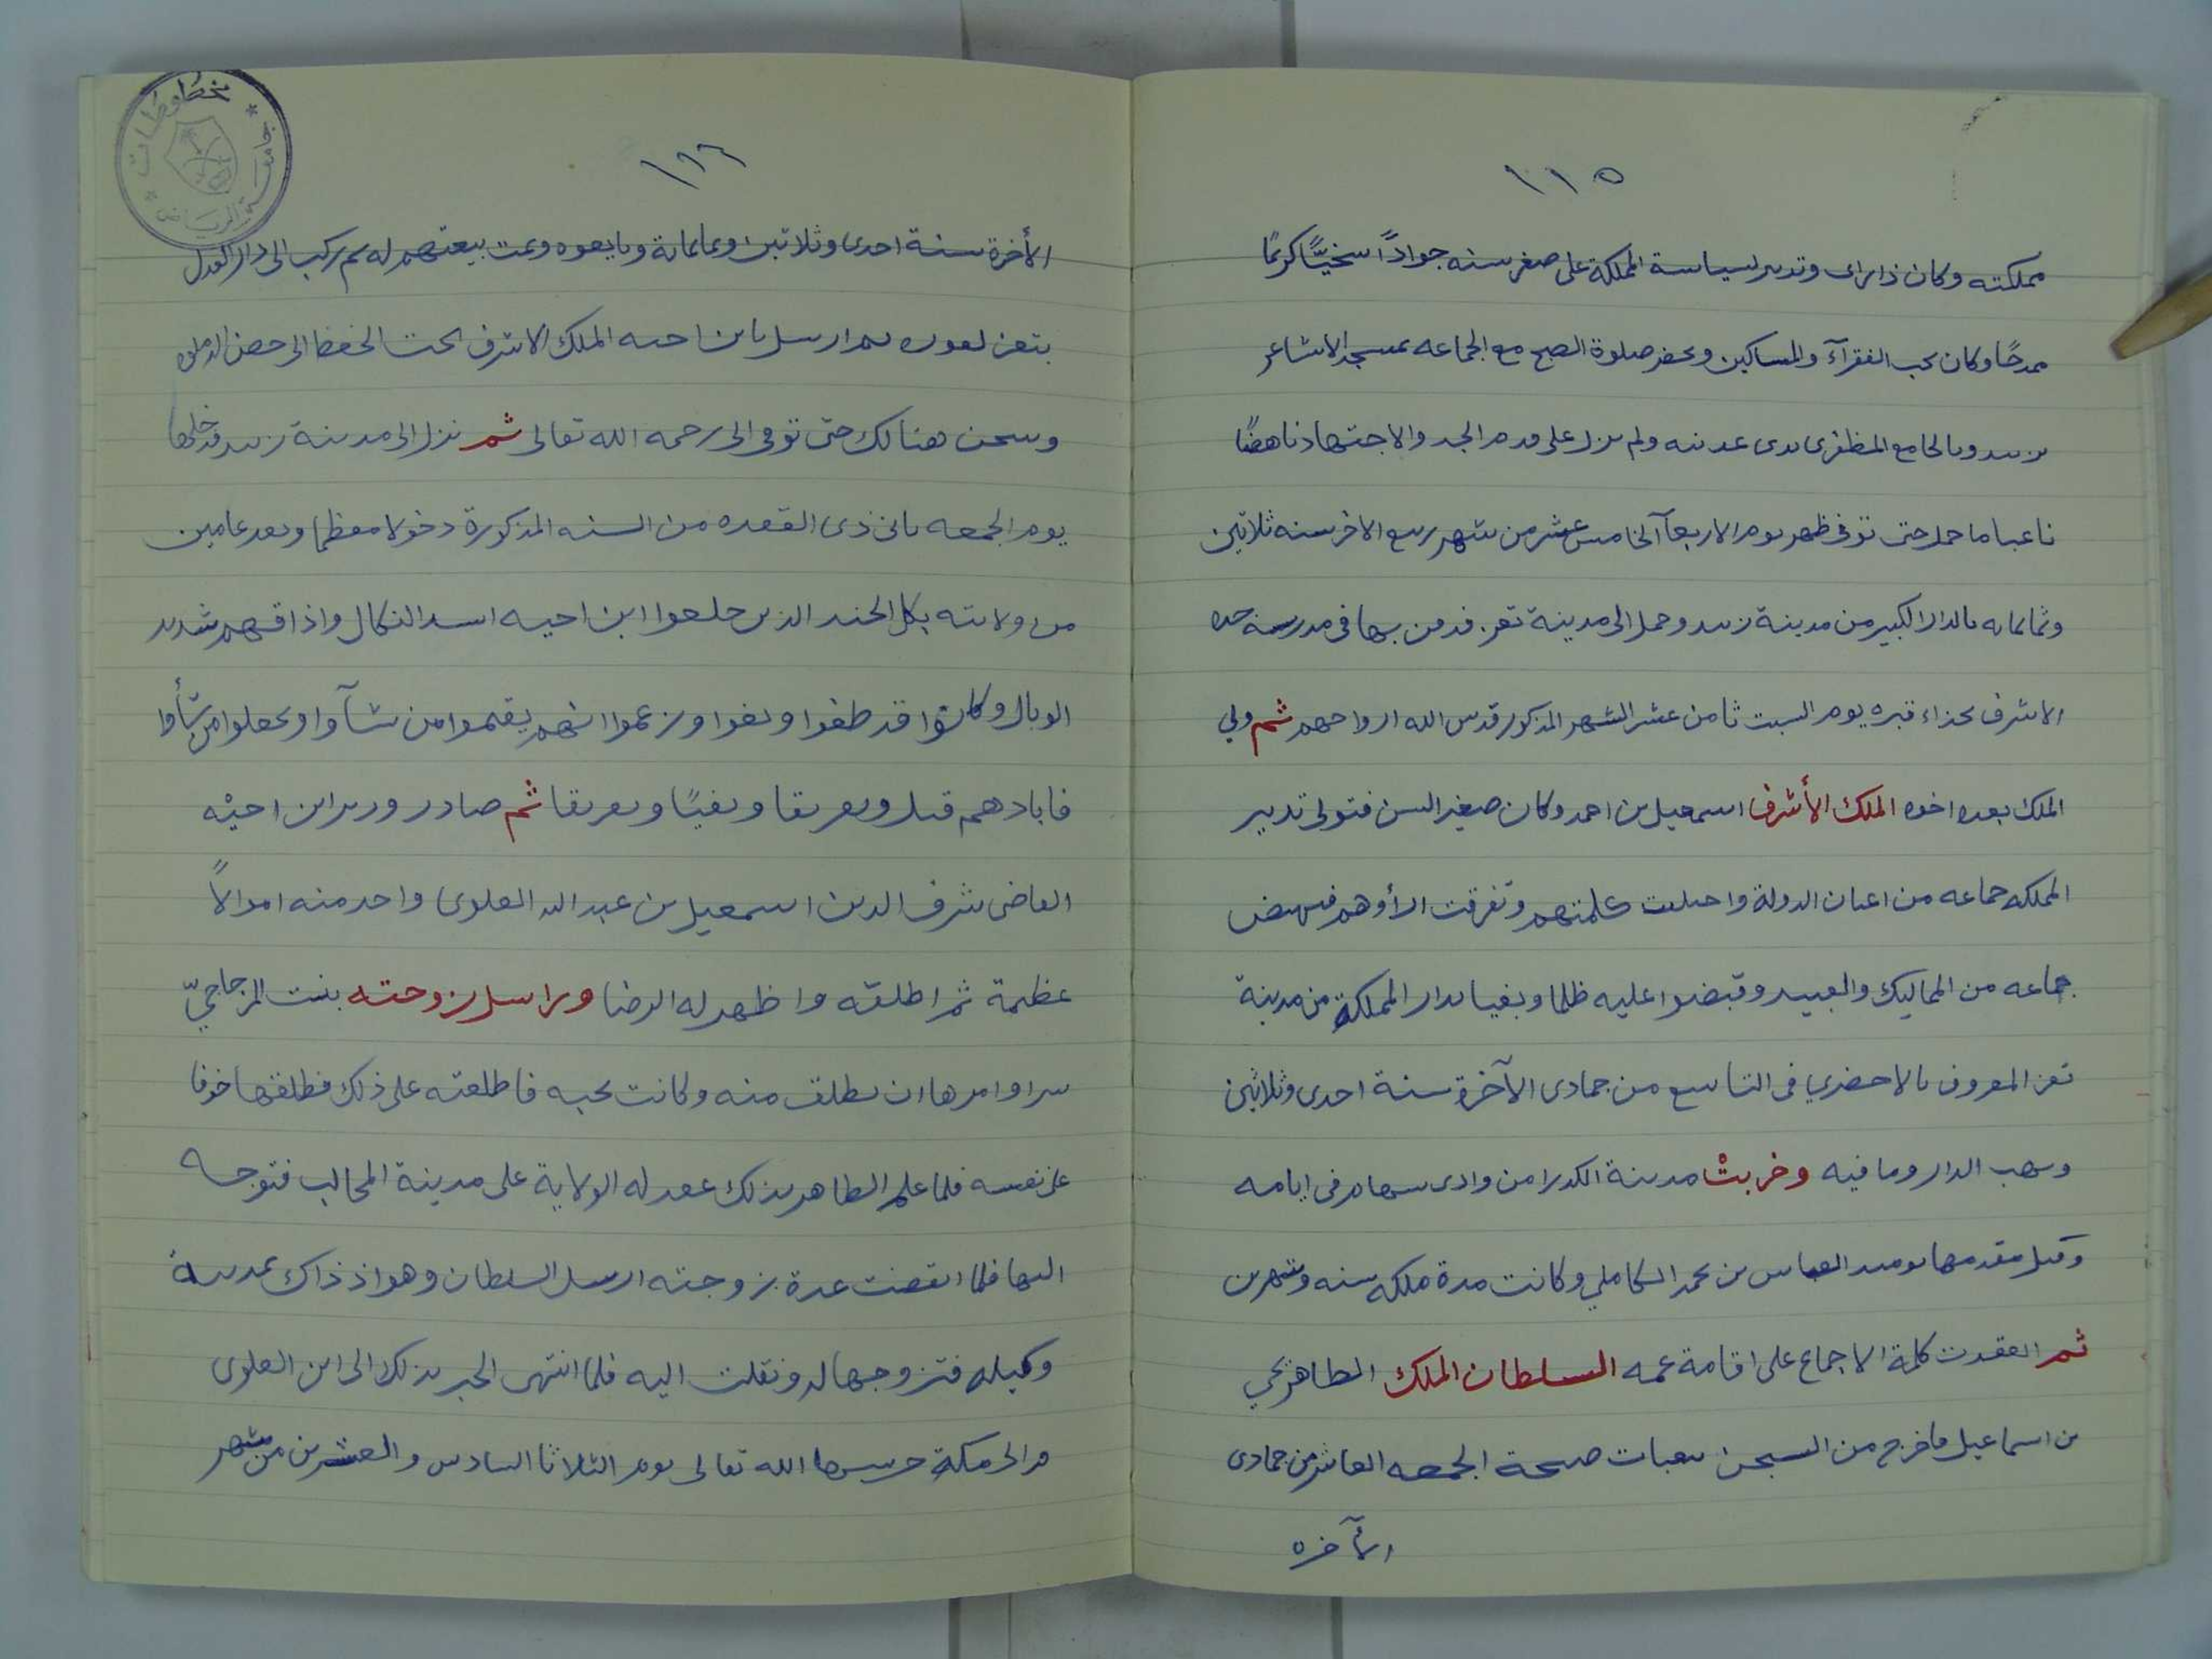 ١١٥
مملكته وكان ذا راى وتدبير لسياسة المملكة على صغر سنه جوادًا سخيًّا كريمًا
ممدحًا وكان يحب الفقرآء والمساكين ويحضر صلوة الصبح مع الجماعه بمسجد الاشاعر
بزبيد وبالجامع المظفرى بذى عدينه ولم يزل على قدم الجد والاجتهاد ناهضًا
باعبا ما حمل حتى توفى ظهر يوم الاربعآ الخامس عشر من شهر ربيع الاخر سنه ثلاثين
وثمانمايه بالدار الكبير من مدينة زبيد وحمل الى مدينة تعز فدفن بها فى مدرسة جده
الاشرف بحذاء قبره يوم السبت ثامن عشر الشهر المذكور قدس الله ارواحهم ثم ولي
الملك بعده اخوه الملك الأشرف اسمعيل بن احمد وكان صغير السن فتولى تدبير
المملكه جماعه من اعيان الدولة واختلفت كلمتهم وتفرقت ارأوهم فنهض
جماعه من المماليك والعبيد وقبضوا عليه ظلما وبغيا بدار المملكة من مدينة
تعز المعروف بالاخضري فى التاسع من جمادى الآخرة سنة احدى وثلاثين
ونهب الدار وما فيه وخربتْ مدينة الكدرا من وادى سهام فى ايامه
وقتل مقدمها يوميذ العباس بن محمد الكاملي وكانت مدة ملكه سنه وشهرين
ثم انعقدت كلمة الاجماع على اقامة عمه السلطان الملك الظاهر يحي
بن اسماعيل فاخرج من السجن بثعبات صبيحة الجمعه العاشر من جمادى
الآخره
١١٦
الأخرة سنة احدى وثلاثين وثمانماية وبايعوه وتمت بيعتهم له ثم ركب الى دار العدل
بتعز ثم ارسل بابن اخيه الملك الاشرف تحت الحفظ الى حصن الدملوه
وسجن هنالك حتى توفى الى رحمه الله تعالى ثم نزل الى مدينة زبيد فدخلها
يوم الجمعه ثانى ذى القعده من السنه المذكورة دخولا معظما وبعد عامين
من ولايته نكل الجند الذين خلعوا ابن اخيه اشد النكال واذاقهم شديد
الوبال وكانوا قد طغوا وبغوا وزعموا انهم يقيموا من شآوا ويخلعوا من شأوا
فابادهم قتلا وتغريقا ونفيًا وتفريقا ثم صادر وزير ابن اخيه
القاضى شرف الدين اسمعيل بن عبد الله العلوى واخذ منه اموالاً
عظيمة ثم اطلقه واظهر له الرضا وراسل زوجته بنت المزجاجيّ
سرا وامرها ان تطلق منه وكانت تحبه فاطلعته على ذلك فطلقها خوفا
على نفسه فلما علم الظاهر بذلك عقد له الولاية على مدينة المحالب فتوجه
اليها فلما انقضت عدة زوجته ارسل السلطان وهو اذ ذاك بمدينة
وكيله فتزوجها له ونقلت اليه فلما انتهى الخبر بذلك الى ابن العلوى
فر الى مكة حرسها الله تعالى يوم الثلاثا السادس والعشرين من شهر
مخطوطات
جامعة الرياض